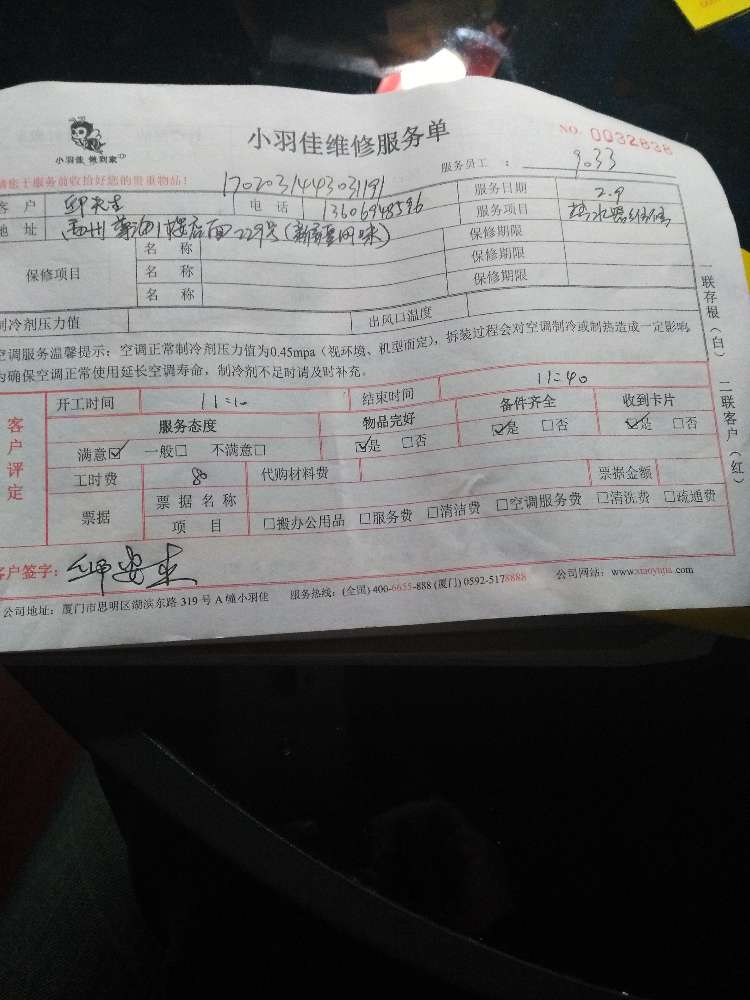 小羽佳 做到家
小羽佳维修服务单
NO. 0032838
请您于服务前收拾好您的贵重物品！
服务员工：9033
17020314443031191
客户 邱先生 电话 13606948596 服务日期 2.9
地址 1楼后面229号(新疆风味) 服务项目 热水器维修
保修项目
名称 保修期限
名称 保修期限
名称 保修期限
制冷剂压力值 出风口温度
空调服务温馨提示：空调正常制冷剂压力值为0.45mpa（视环境、机型而定），拆装过程会对空调制冷或制热造成一定影响
为确保空调正常使用延长空调寿命，制冷剂不足时请及时补充。
客户评定
开工时间 11:10 结束时间 11:40
服务态度 物品完好 备件齐全 收到卡片
满意☑ 一般□ 不满意□ ☑是 □否 ☑是 □否 ☑是 □否
工时费 80 代购材料费 票据金额
票据
票据名称
项目 □搬办公用品 □服务费 □清洁费 □空调服务费 □清洗费 □疏通费
客户签字：
公司地址：厦门市思明区湖滨东路 319 号 A 幢小羽佳 服务热线：(全国) 400-6655-888 (厦门) 0592-5178888 公司网站：www.xiaoyujia.com
一联存根（白） 二联客户（红）